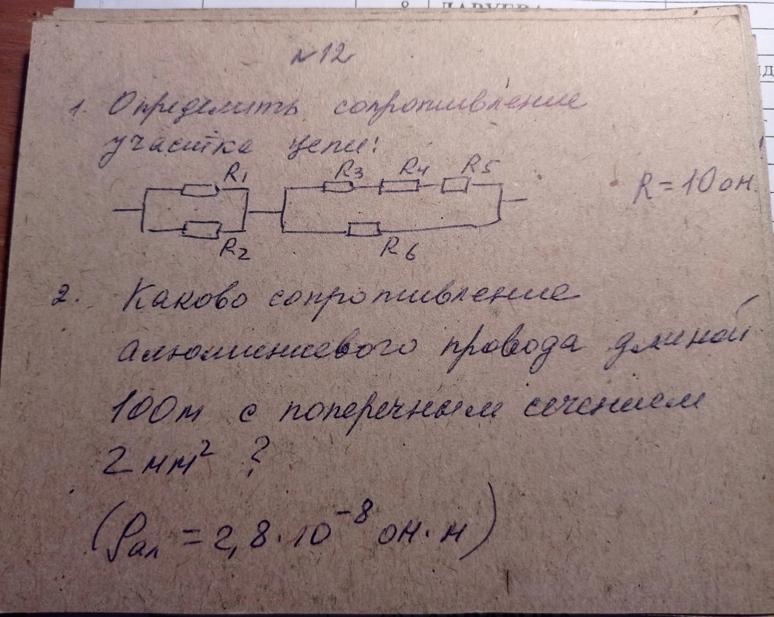 №12
1. Определить сопротивление
участка цепи:
R1
R3 R4 R5
R = 10 ом.
R2
R6
2. Каково сопротивление
алюминиевого провода длиной
100м с поперечным сечением
2 мм² ?
(ρал = 2,8·10⁻⁸ ом·м)